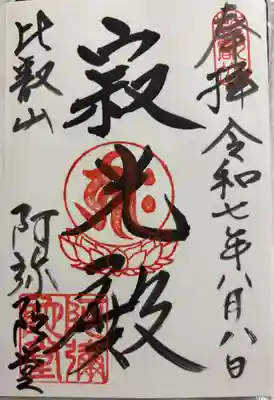 奉拝 令和七年八月八日
寂光殿
比叡山 阿弥陀堂
阿彌
陀堂